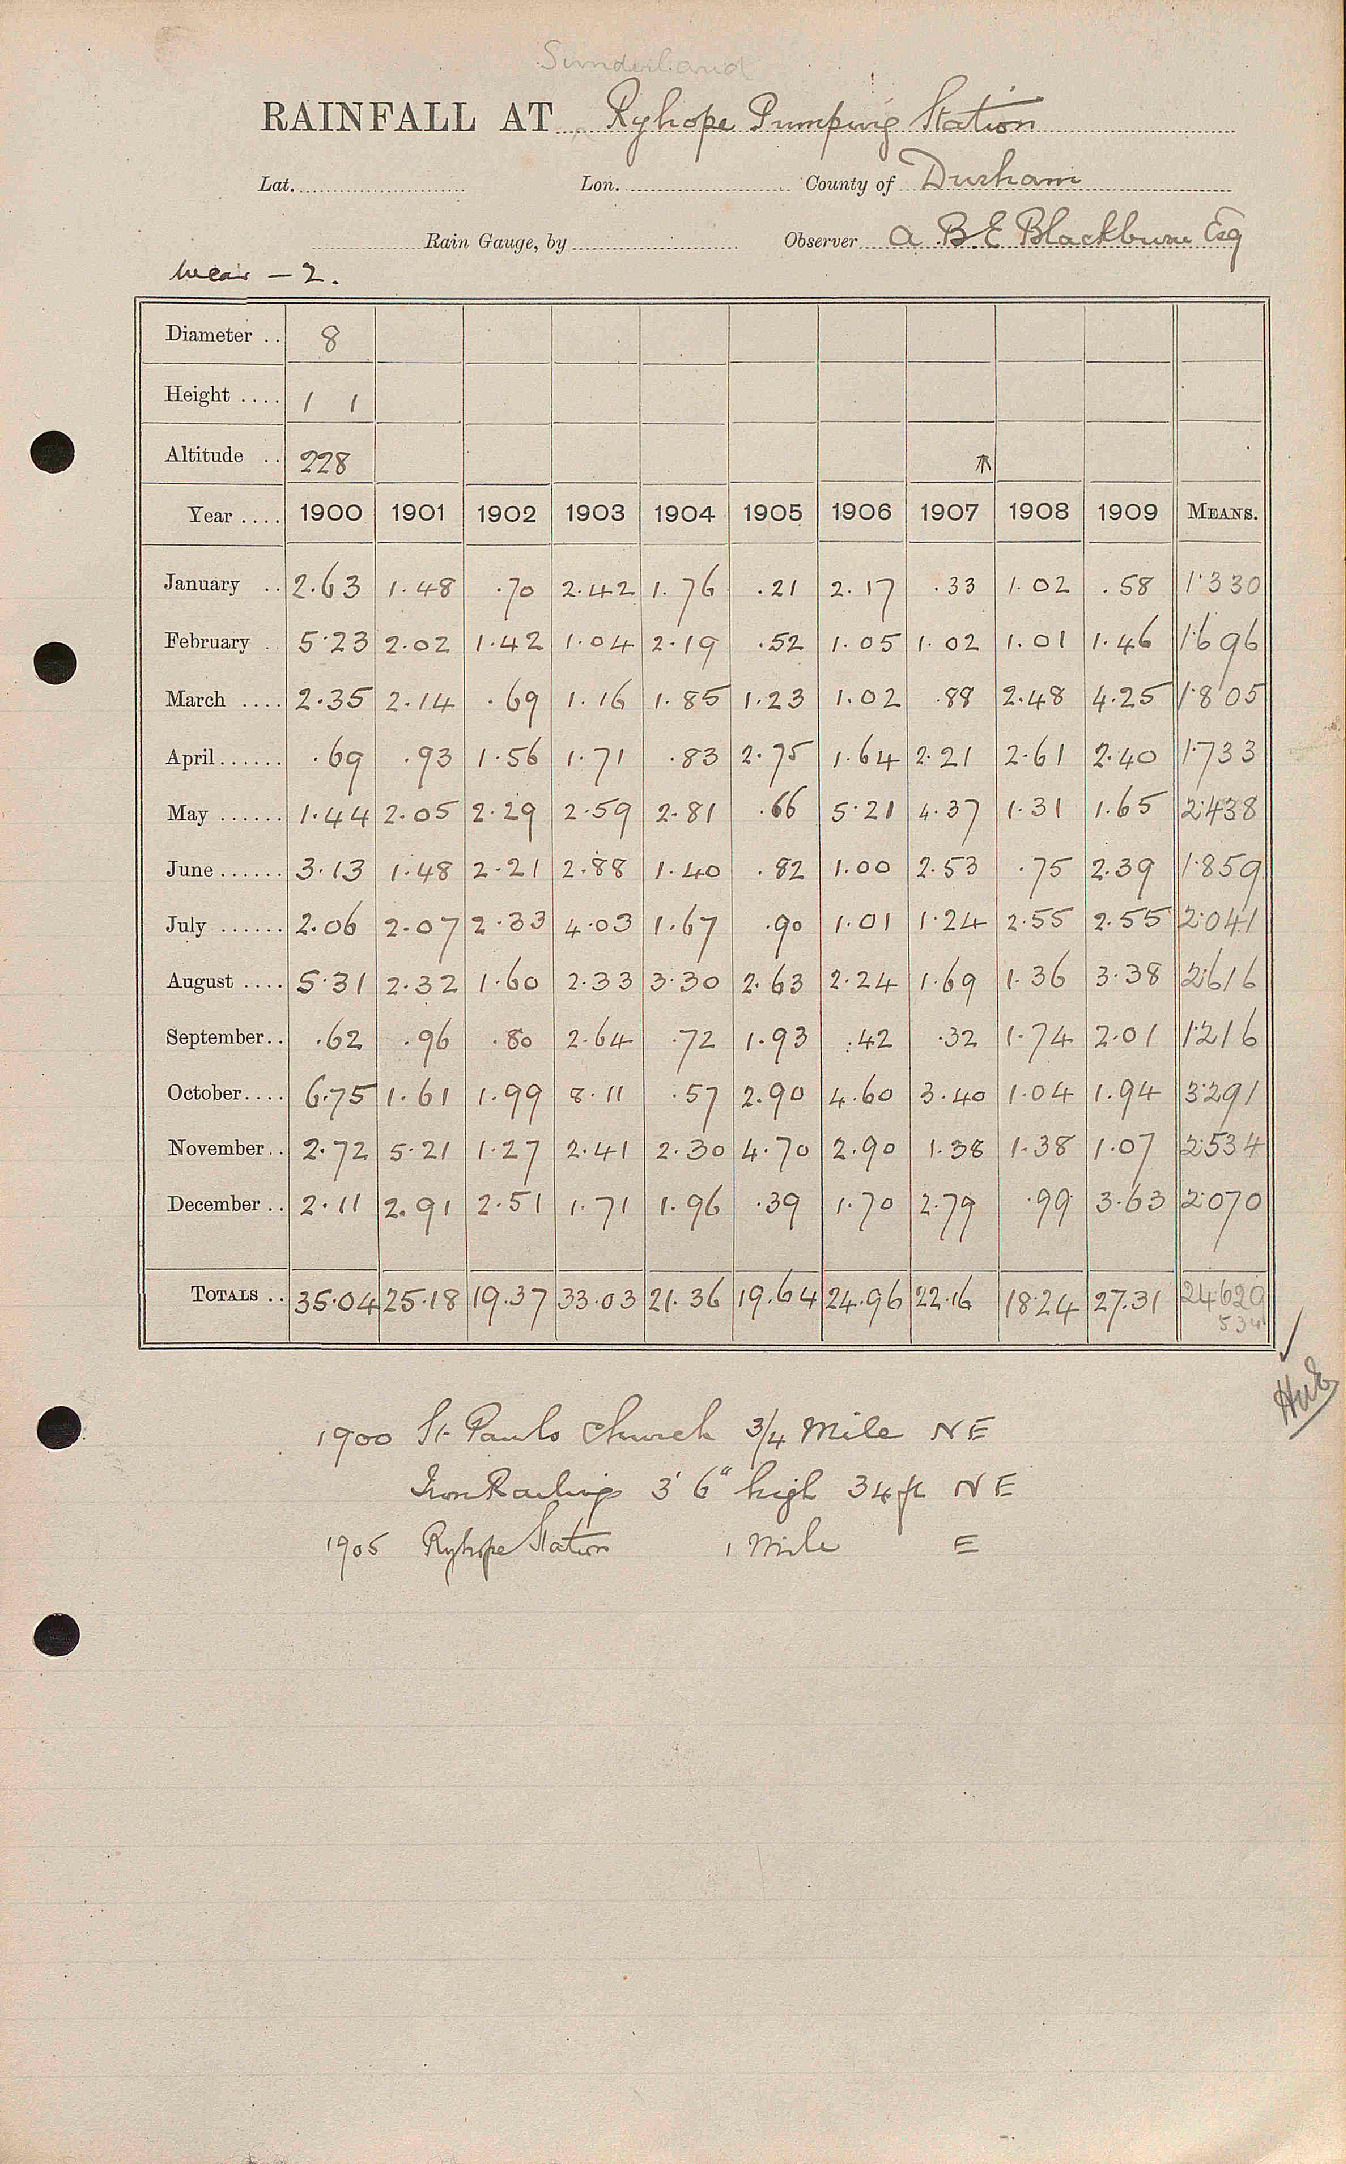 Sunderland
RAINFALL AT Ryhope Pumping Station
Lat. Lon. County of Durham
Rain Gauge, by Observer A. B. E. Blackburn Esq
Wear - 2.
Diameter .. 8
Height .... 1 1
Altitude .. 228
Year .... 1900 1901 1902 1903 1904 1905 1906 1907 1908 1909 MEANS.
January .. 2.63 1.48 .70 2.42 1.76 .21 2.17 .33 1.02 .58 1.330
February . 5.23 2.02 1.42 1.04 2.19 .52 1.05 1.02 1.01 1.46 1.696
March .... 2.35 2.14 .69 1.16 1.85 1.23 1.02 .88 2.48 4.25 1.805
April...... .69 .93 1.56 1.71 .83 2.75 1.64 2.21 2.61 2.40 1.733
May ...... 1.44 2.05 2.29 2.59 2.81 .66 5.21 4.37 1.31 1.65 2.438
June...... 3.13 1.48 2.21 2.88 1.40 .82 1.00 2.53 .75 2.39 1.859
July ...... 2.06 2.07 2.33 4.03 1.67 .90 1.01 1.24 2.55 2.55 2.041
August .... 5.31 2.32 1.60 2.33 3.30 2.63 2.24 1.69 1.36 3.38 2.616
September.. .62 .96 .80 2.64 .72 1.93 .42 .32 1.74 2.01 1.216
October.... 6.75 1.61 1.99 8.11 .57 2.90 4.60 3.40 1.04 1.94 3.291
November.. 2.72 5.21 1.27 2.41 2.30 4.70 2.90 1.38 1.38 1.07 2.534
December .. 2.11 2.91 2.51 1.71 1.96 .39 1.70 2.79 .99 3.63 2.070
TOTALS .. 35.04 25.18 19.37 33.03 21.36 19.64 24.96 22.16 18.24 27.31 24629
1900 St Pauls Church 3/4 Mile NE
Iron Railings 3' 6" high 34 ft NE
1905 Ryhope Station 1 Mile E